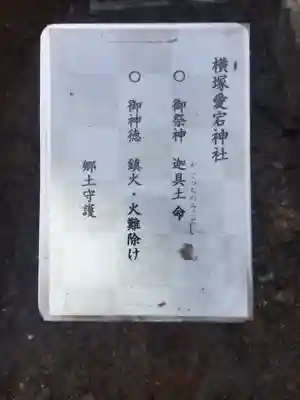 横塚愛宕神社
○ 御祭神 迦具土命
○ 御神徳 鎮火・火難除け
郷土守護